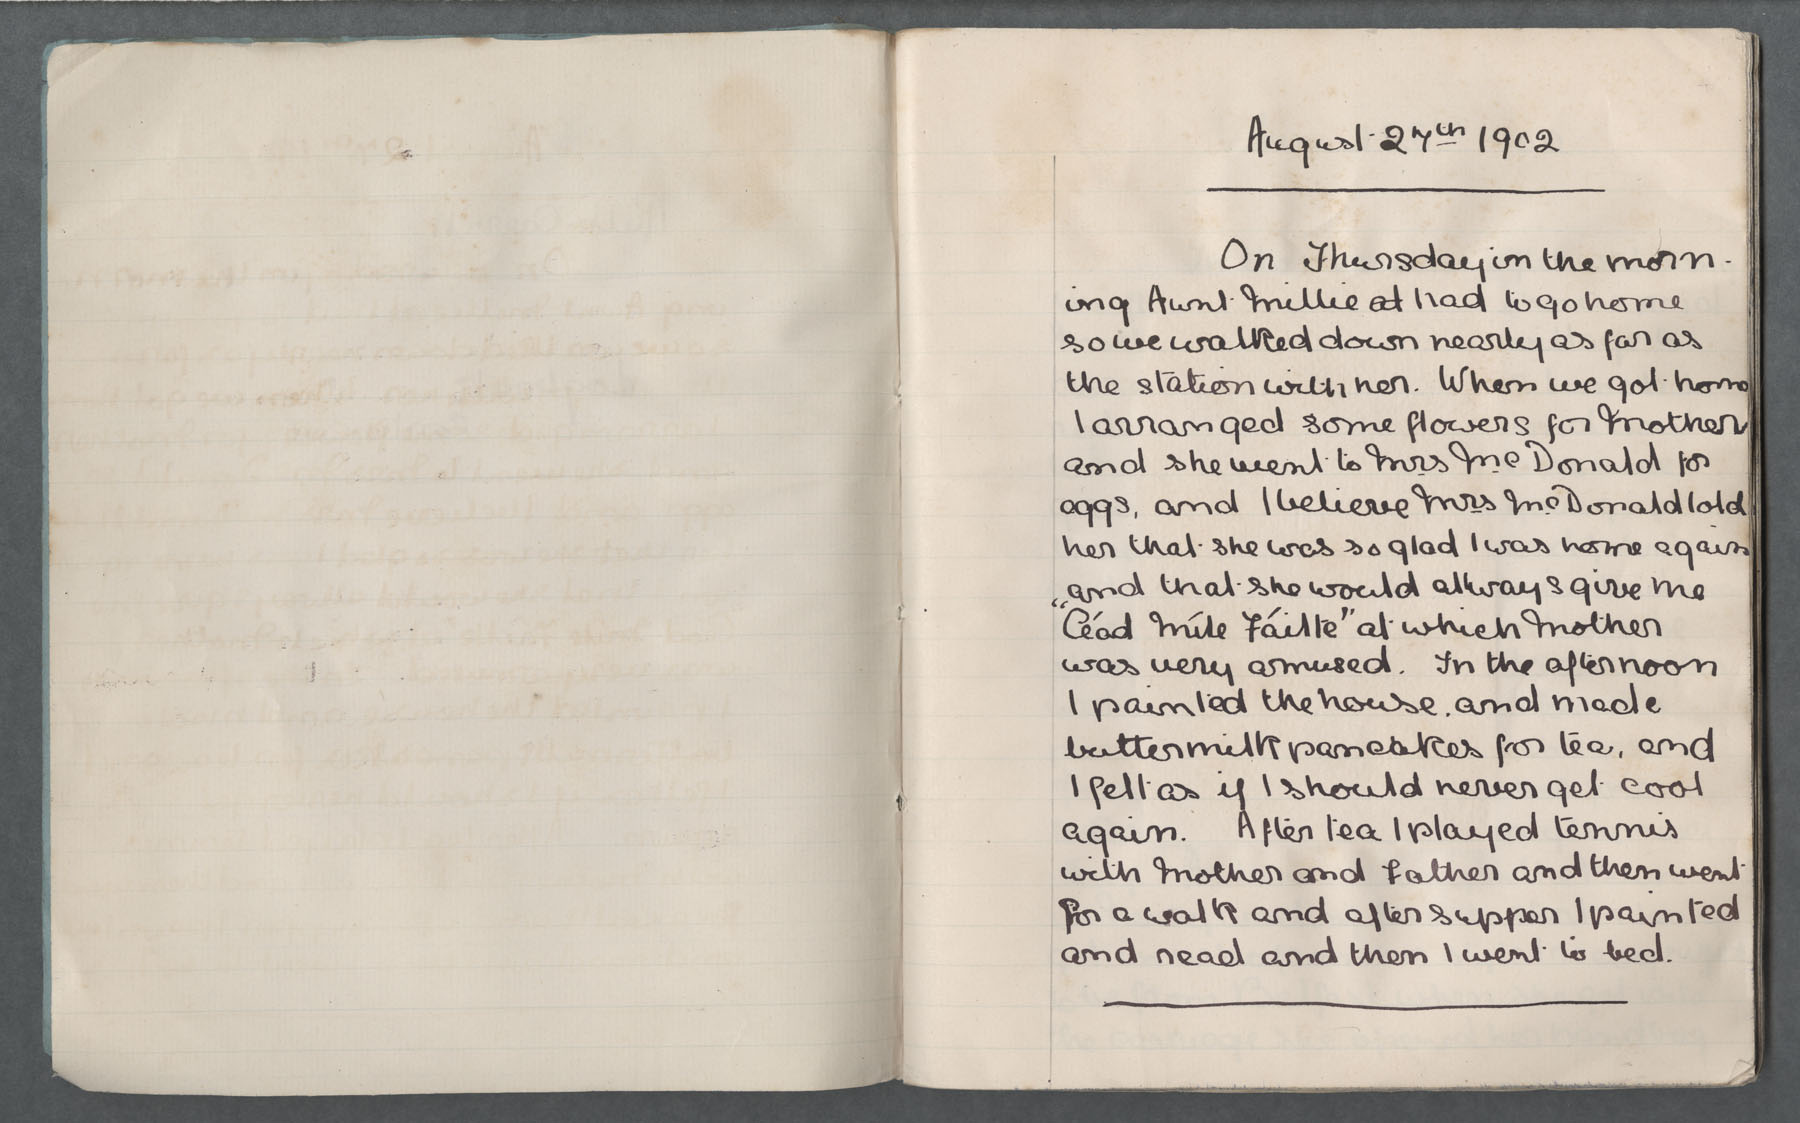 August 27th 1902
On Thursday in the morn-
ing Aunt Millie at had to go home
so we walked down nearly as far as
the station with her. When we got home
I arranged some flowers for Mother
and she went to Mrs McDonald for
eggs, and I believe Mrs McDonald told
her that she was so glad I was home again
and that she would always give me
"Céad Míle Fáilte" at which Mother
was very amused. In the afternoon
I painted the house, and made
buttermilk pancakes for tea, and
I felt as if I should never get cool
again. After tea I played tennis
with Mother and Father and then went
for a walk and after supper I painted
and read and then I went to bed.